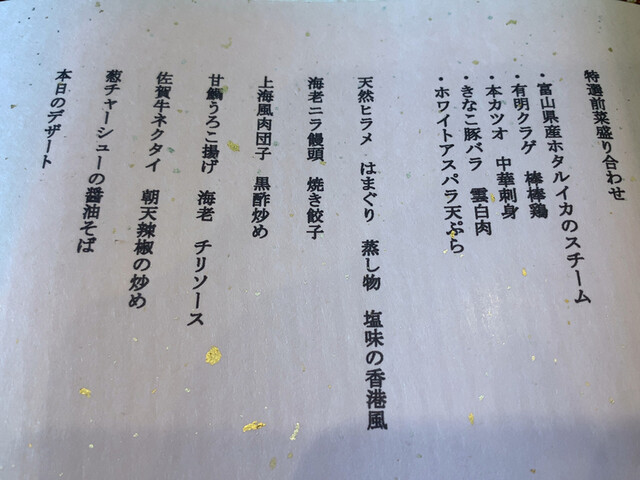 特選前菜盛り合わせ
・富山県産ホタルイカのスチーム
・有明クラゲ　棒棒鶏
・本カツオ　中華刺身
・きなこ豚バラ　雲白肉
・ホワイトアスパラ天ぷら
天然ヒラメ　はまぐり　蒸し物　塩味の香港風
海老ニラ饅頭　焼き餃子
上海風肉団子　黒酢炒め
甘鯛うろこ揚げ　海老　チリソース
佐賀牛ネクタイ　朝天辣椒の炒め
葱チャーシューの醤油そば
本日のデザート